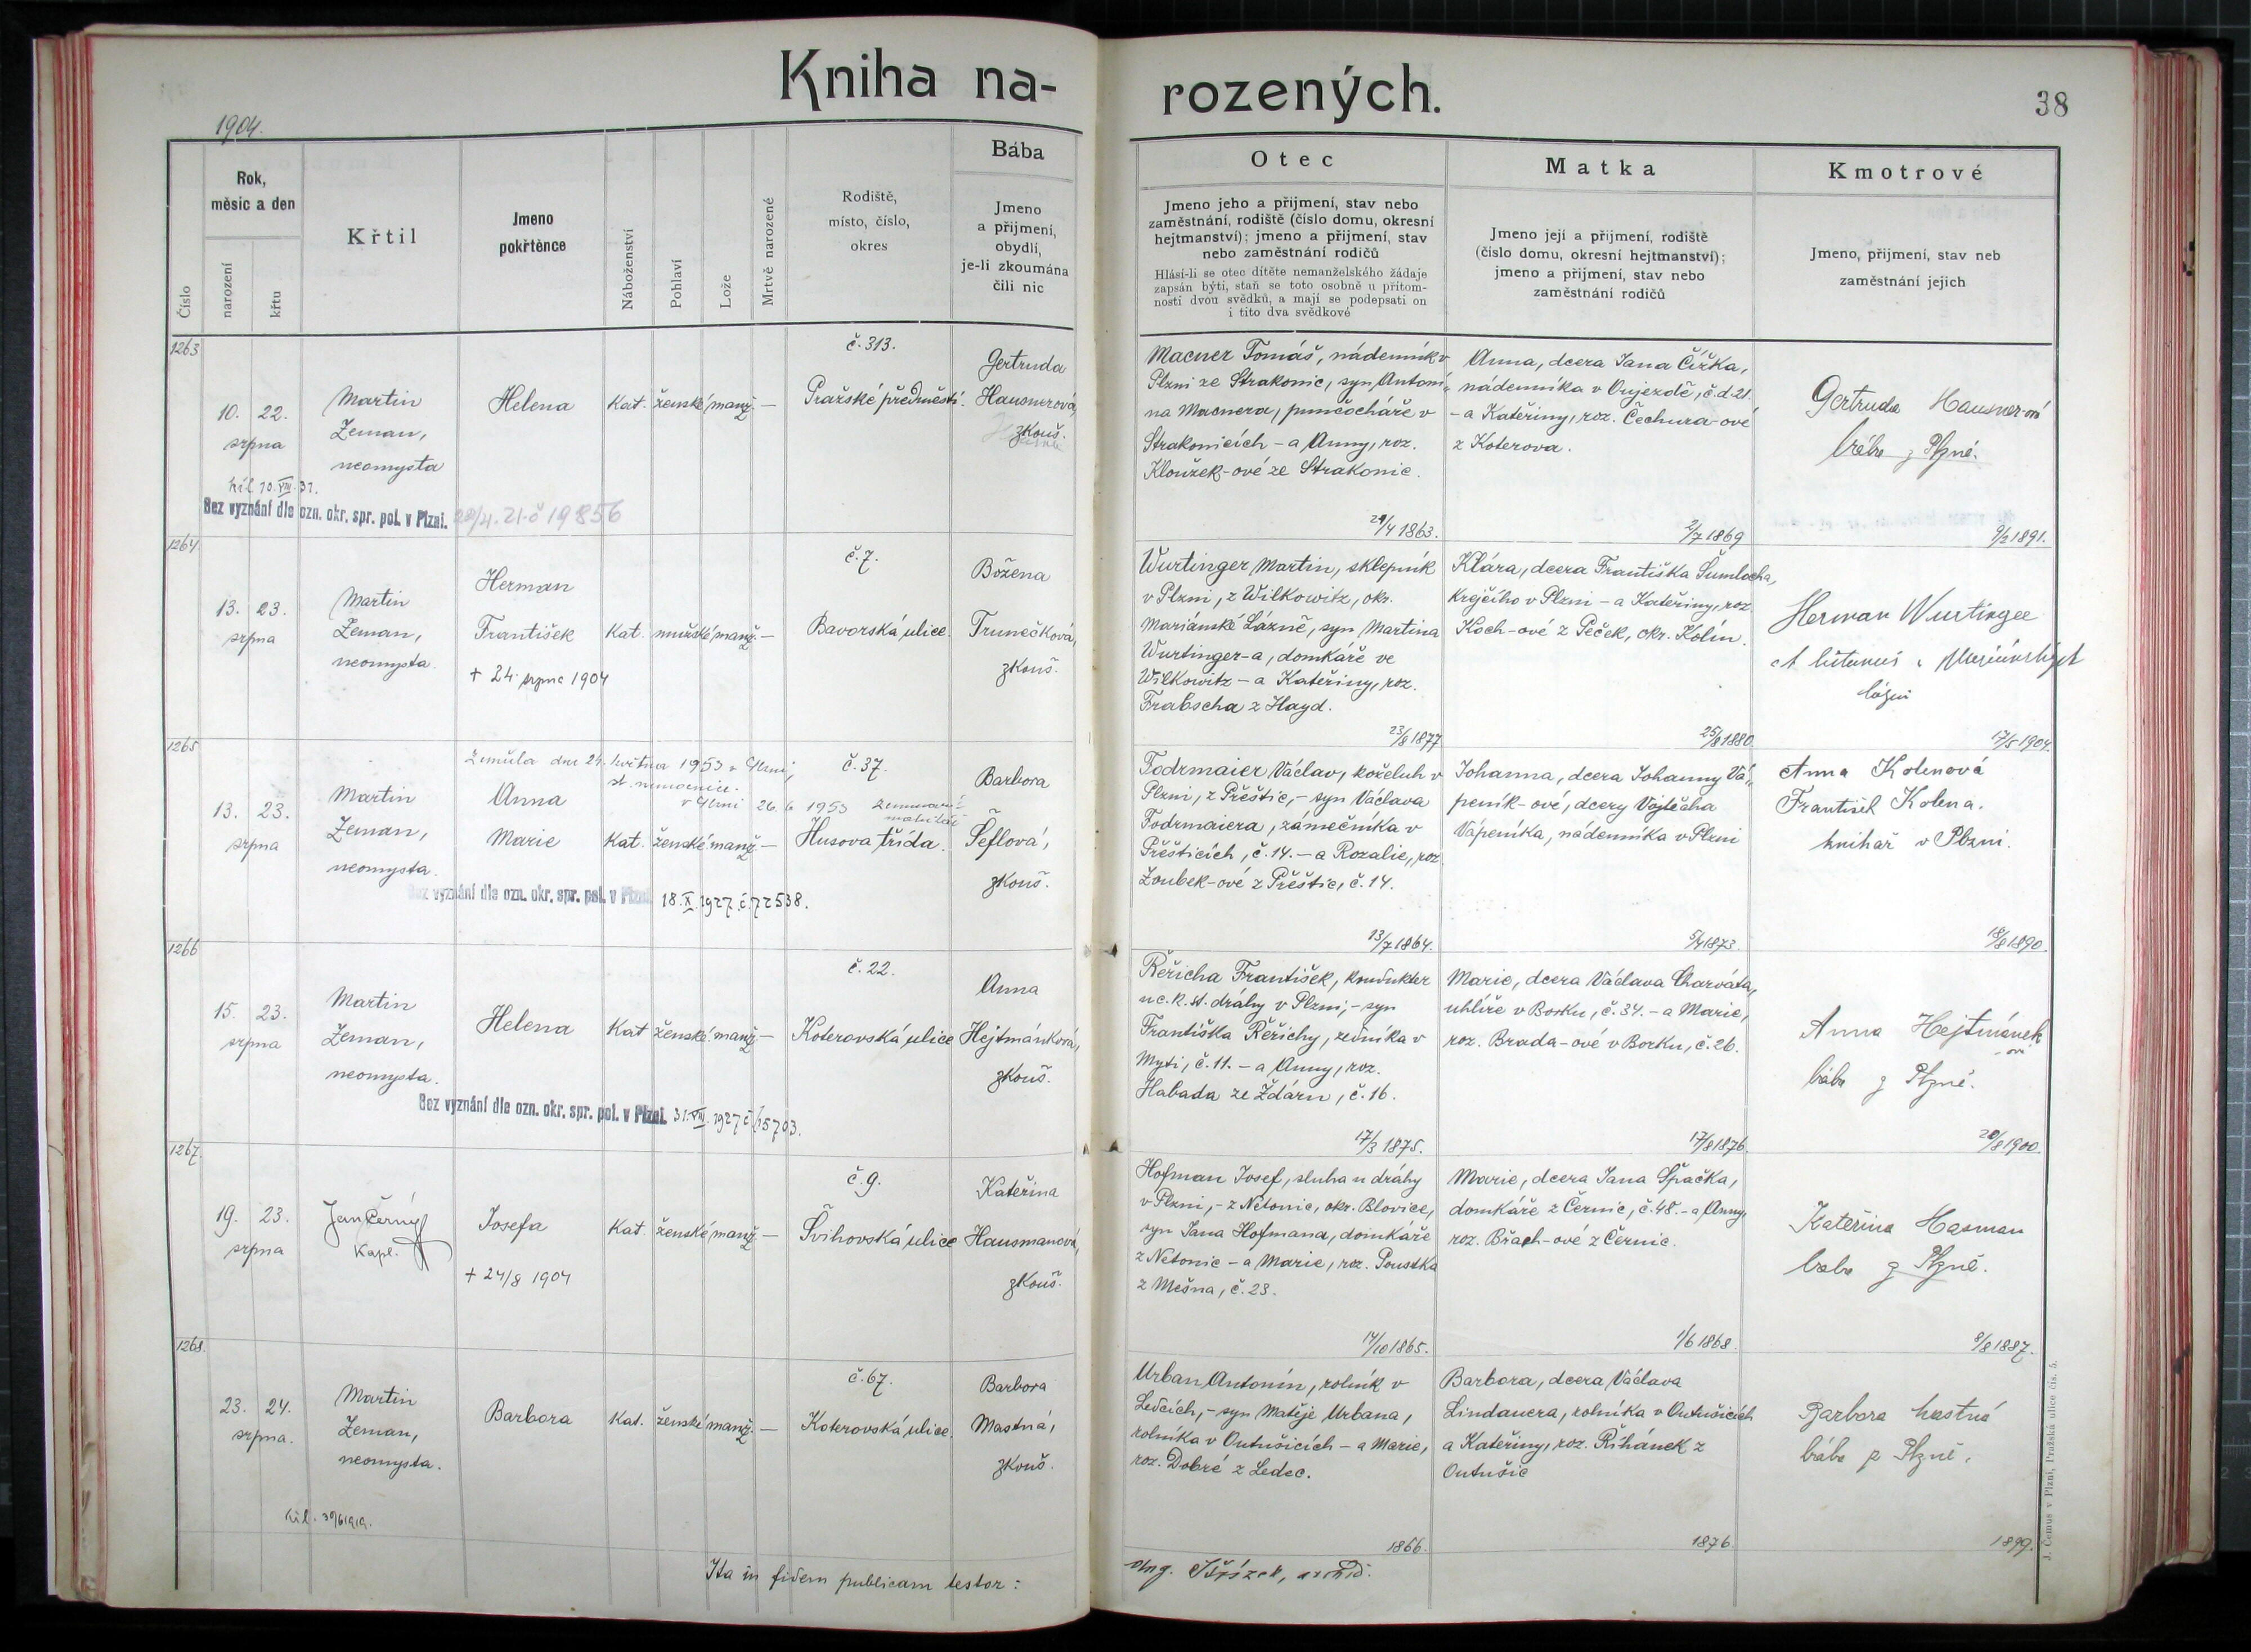 Kniha na-
rozených.
38
1904.
Číslo
Rok,
měsíc a den
narození
křtu
Křtil
Jmeno
pokřtěnce
Náboženství
Pohlaví
Lože
Mrtvě narozené
Rodiště,
místo, číslo,
okres
Bába
Jmeno
a přijmení,
obydlí,
je-li zkoumána
čili nic
Otec
Jmeno jeho a přijmení, stav nebo
zaměstnání, rodiště (číslo domu, okresní
hejtmanství); jmeno a přijmení, stav
nebo zaměstnání rodičů
Hlásí-li se otec dítěte nemanželského žádaje
zapsán býti, staň se toto osobně u přítom-
nosti dvou svědků, a mají se podepsati on
i tito dva svědkové
Matka
Jmeno její a přijmení, rodiště
(číslo domu, okresní hejtmanství);
jmeno a přijmení, stav nebo
zaměstnání rodičů
Kmotrové
Jmeno, přijmení, stav neb
zaměstnání jejich
1263
10. 22.
srpna
Martin
Zeman,
neomysta
Helena
Kat. ženské manž. —
č. 313.
Pražské předměstí.
Gertruda
Hausnerová,
zkouš.
Macner Tomáš, nádenník v
Plzni ze Strakonic, syn Antoní-
na Macnera, punčocháře v
Strakonicích – a Anny, roz.
Kloužek-ové ze Strakonic.
29/4 1863.
Anna, dcera Jana Čížka,
nádenníka v Oujezdě, č.d. 21.
- a Kateřiny, roz. Čechura-ové
z Koterova.
2/7 1869
Gertruda Hausner-ová
bába z Plzně.
9/2 1891.
bił 10. VIII. 31.
Bez vyznání dle ozn. okr. spr. pol. v Plzni. 22/4. 21. č 19856
1264
13. 23.
srpna
Martin
Zeman,
neomysta.
Herman
František
+ 24. srpna 1904
Kat. mužské manž. —
č. 7.
Bavorská ulice.
Božena
Trunečková,
zkouš.
Wurtinger Martin, sklepník
v Plzni, z Wilkowitz, okr.
Mariánské Lázně, syn Martina
Wurtinger-a, domkáře ve
Wilkowitz – a Kateřiny, roz.
Frabscha z Hayd.
23/8 1877
Klára, dcera Františka Šumlocha,
krejčího v Plzni – a Kateřiny, roz.
Koch-ové z Peček, okr. Kolín.
25/8 1880.
Herman Wurtinger
17/5 1904.
1265
13. 23.
srpna
Martin
Zeman,
neomysta.
Zemřela dne 24. května 1953 v Plzni,
st. nemocnice.
v Plzni 26. 6 1953
Anna
Marie
Kat. ženské manž. —
č. 37.
Husova třída.
Barbora
Šeflová,
zkouš.
Todrmaier Václav, koželuh v
Plzni, z Přeštic, – syn Václava
Todrmaiera, zámečníka v
Přešticích, č. 14. – a Rozalie, roz.
Zoubek-ové z Přeštic, č. 14.
13/7 1864.
Johanna, dcera Johanny Vá-
peník-ové, dcery Vojtěcha
Vápeníka, nádenníka v Plzni
5/4 1873.
Anna Kolenová
František Kolena.
knihař v Plzni.
18/8 1890.
Bez vyznání dle ozn. okr. spr. pol. v Plzni 18. X. 1927. č. 72538.
1266
15. 23.
srpna
Martin
Zeman,
neomysta.
Helena
Kat ženské manž. —
č. 22.
Koterovská ulice
Anna
Hejtmánková,
zkouš.
Řeřicha František, konduktér
u c. k. st. dráhy v Plzni, – syn
Františka Řeřichy, zedníka v
Mýti, č. 11. – a Anny, roz.
Habada ze Ždáru, č. 16.
17/3 1875.
Marie, dcera Václava Charváta,
uhlíře v Borku, č. 34. – a Marie,
roz. Brada-ové v Borku, č. 26.
17/8 1876.
Anna Hejtmánek
-ová
bába z Plzně.
20/8 1900.
Bez vyznání dle ozn. okr. spr. pol. v Plzni. 31. VIII. 1927 č. 65703.
1267.
19. 23.
srpna
Jan Černý
Kapl.
Josefa
+ 24/8 1904
Kat. ženské manž. —
č. 9.
Švihovská ulice
Kateřina
Hausmanová,
zkouš.
Hofman Josef, sluha u dráhy
v Plzni, – z Netonic, okr. Blovice,
syn Jana Hofmana, domkáře
z Netonic – a Marie, roz. Poustka
z Mešna, č. 23.
14/10 1865.
Marie, dcera Jana Špačka,
domkáře z Černic, č. 48. – a Anny,
roz. Břach-ové z Černic.
1/6 1868.
Kateřina Hasman
baba z Plzně.
8/8 1887.
1268.
23. 24.
srpna.
Martin
Zeman,
neomysta.
Barbora
Kat. ženské manž. —
č. 67.
Koterovská ulice.
Barbora
Mastná,
zkouš.
Urban Antonín, rolník v
Ledcích, – syn Matěje Urbana,
rolníka v Outušicích – a Marie,
roz. Dobré z Ledec.
1866.
Barbora, dcera Václava
Lindauera, rolníka v Outušicích
a Kateřiny, roz. Říhánek z
Outušic
1876.
Barbora Mastná
bába z Plzně.
1899.
bił. 30/6 1919.
Ita in fidem publicam testor:
J. Čemus v Plzni, Pražská ulice čís. 5.